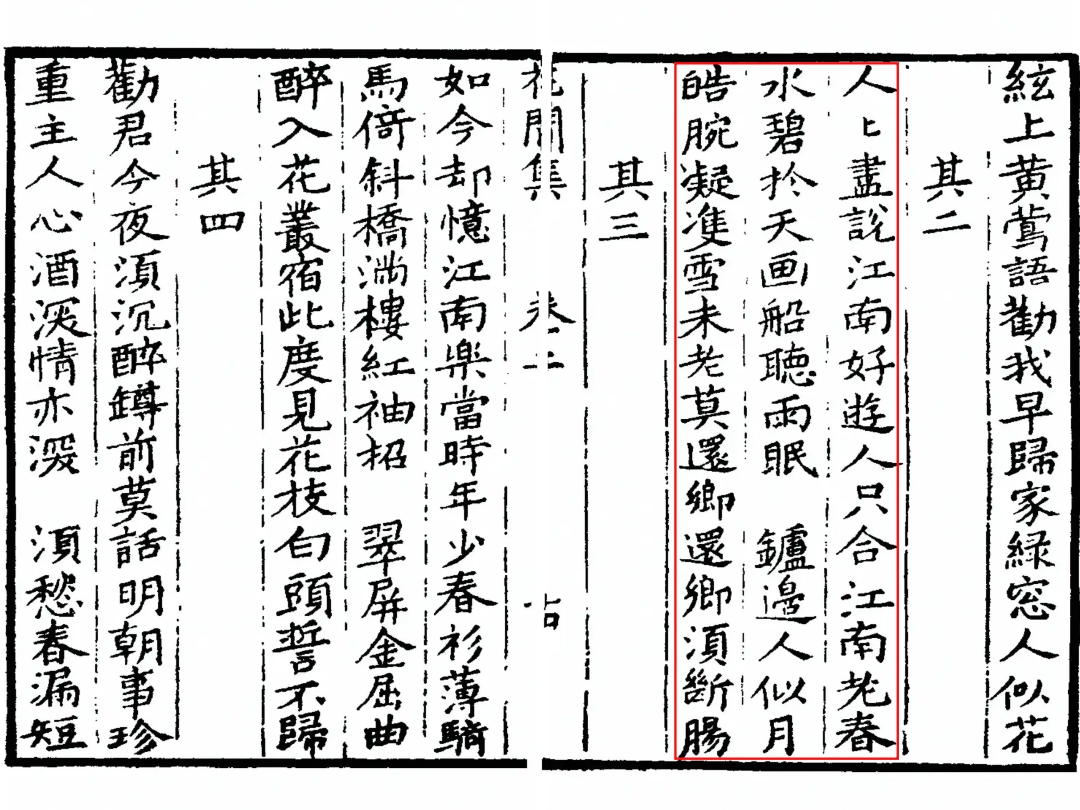 絃上黄鶯語勸我早歸家緑窓人似花
其二
人〻盡說江南好遊人只合江南老春
水碧扵天画船聽雨眠　鑪邊人似月
皓腕凝雙雪未老莫還鄉還鄉湏斷腸
其三
花間集　卷二
如今却憶江南楽當時年少春衫薄騎
馬倚斜橋滿樓紅袖招　翠屏金屈曲
醉入花叢宿此度見花枝白頭誓不歸
其四
勸君今夜湏沉醉鐏前莫話明朝事珍
重主人心酒深情亦深　湏愁春漏短